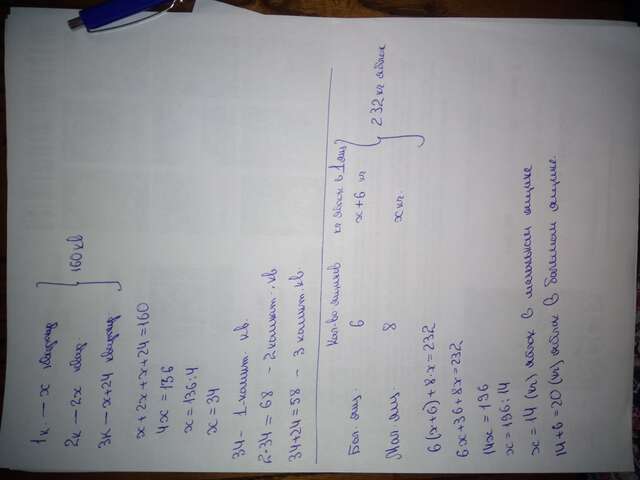 1к. — x квартир
2к — 2x квар.
3к — x+24 квартир } 160 кв
x+2x+x+24=160
4x=136
x=136:4
x=34
34 - 1 комнат. кв.
2·34=68 - 2 комнат. кв
34+24=58 - 3 комнат. кв.
Кол-во ящиков кг яблок в 1 ящ
Бол ящ. 6 x+6 кг
Мал ящ. 8 x кг. } 232 кг яблок
6(x+6)+8·x=232
6x+36+8x=232
14x=196
x=196:14
x=14 (кг) яблок в маленьком ящике
14+6=20 (кг) яблок в большом ящике.